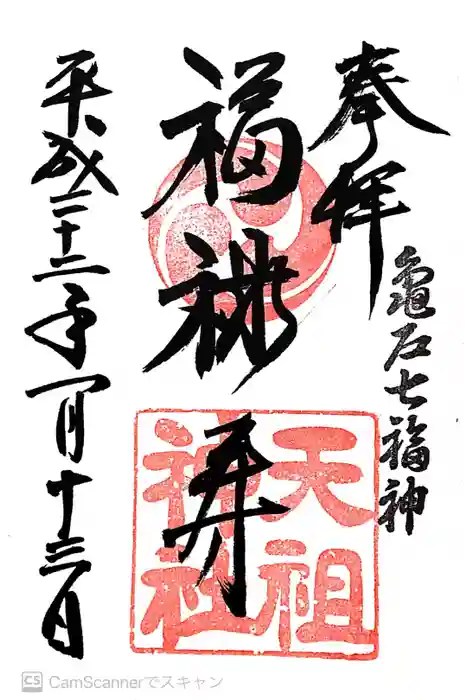 奉拝
亀戸七福神
福禄寿
天祖
神社
平成二十二年一月十三日
CS CamScannerでスキャン